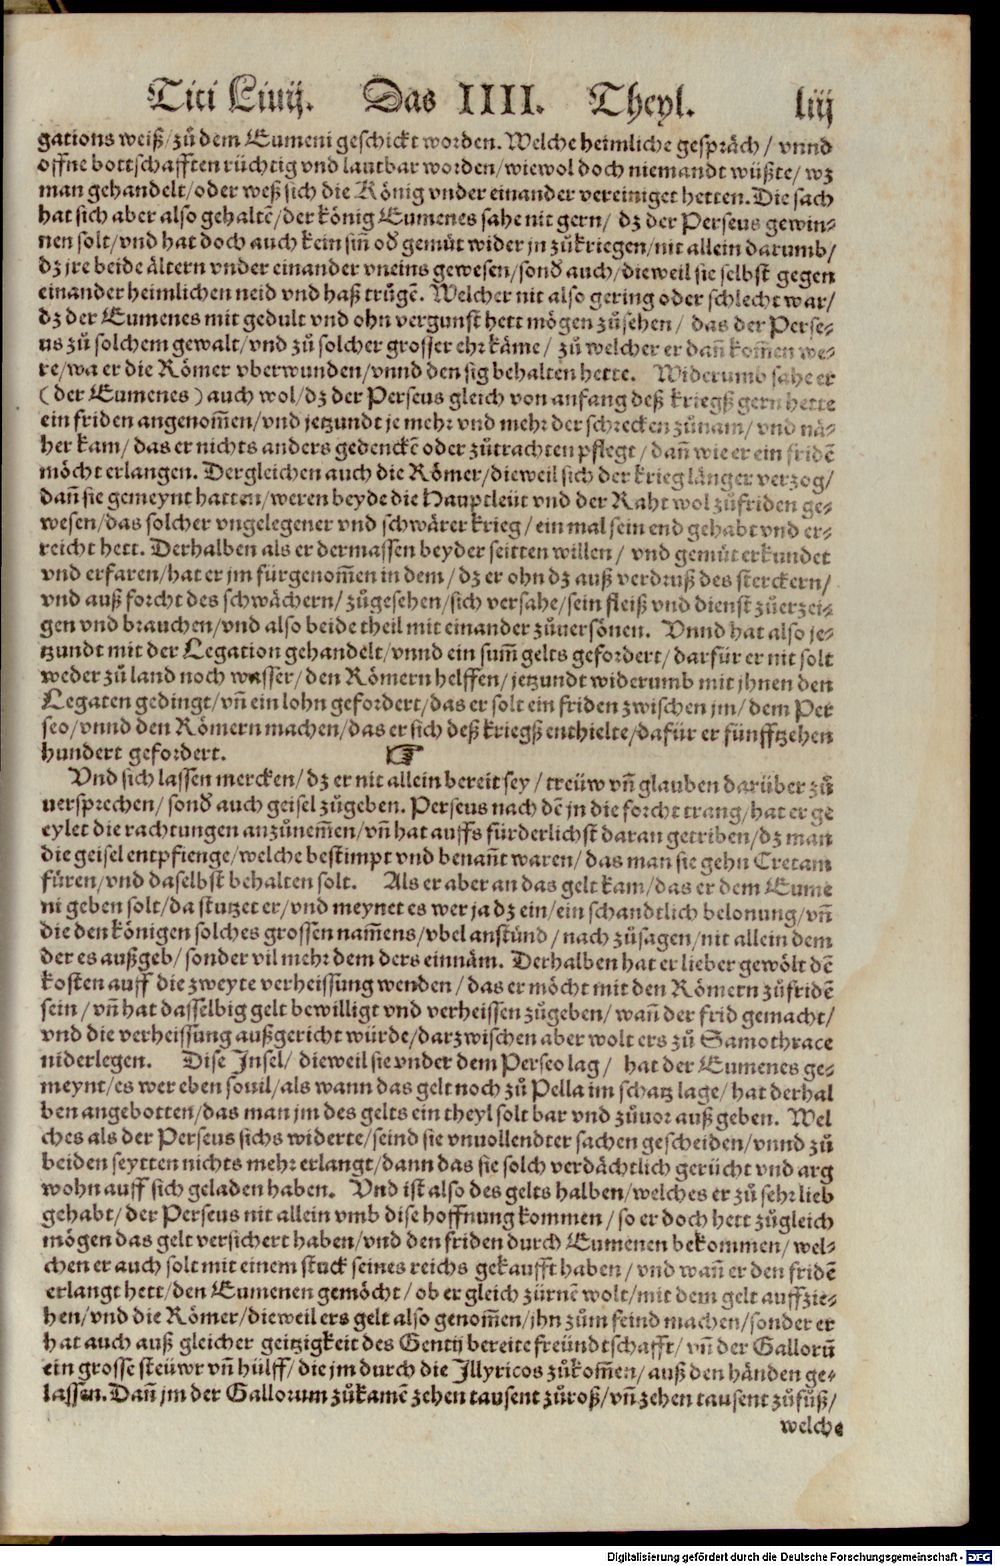 Titi Liuij. Das IIII. Theyl. liij
gations weiß/zů dem Eumeni geschickt worden. Welche heimliche gespräch/ vnnd
offne bottschafften rüchtig vnd lautbar worden/wiewol doch niemandt wüßte/ wz
man gehandelt/oder weß sich die König vnder einander vereiniget hetten. Die sach
hat sich aber also gehaltẽ/der könig Eumenes sahe nit gern/ dz der Perseus gewin-
nen solt/vnd hat doch auch kein siñ od gemüt wider jn zůkriegen/nit allein darumb/
dz jre beide ältern vnder einander vneins gewesen/sond auch/dieweil sie selbst gegen
einander heimlichen neid vnd haß trügẽ. Welcher nit also gering oder schlecht war/
dz der Eumenes mit gedult vnd ohn vergunst hett mögen zůsehen/ das der Perse-
us zů solchem gewalt/vnd zů solcher grosser ehr käme/ zů welcher er dañ kom̃en we-
re/wa er die Römer vberwunden/vnnd den sig behalten hette. Widerumb sahe er
(der Eumenes) auch wol/dz der Perseus gleich von anfang deß kriegß gern hette
ein friden angenom̃en/vnd jetzundt je mehr vnd mehr der schrecken zůnam/ vnd nä-
her kam/ das er nichts anders gedenckẽ oder zůtrachten pflegt/ dañ wie er ein fridẽ
möcht erlangen. Dergleichen auch die Römer/dieweil sich der krieg länger verzog/
dañ sie gemeynt hatten/weren beyde die Hauptleüt vnd der Raht wol zůfriden ge-
wesen/das solcher vngelegener vnd schwärer krieg/ein mal sein end gehabt vnd er-
reicht hett. Derhalben als er dermassen beyder seitten willen/ vnd gemüt erkundet
vnd erfaren/hat er jm fürgenom̃en in dem/ dz er ohn dz auß verdruß des sterckern/
vnd auß forcht des schwächern/zůgesehen/sich versahe/sein fleiß vnd dienst zůerzei-
gen vnd brauchen/vnd also beide theil mit einander zůuersönen. Vnnd hat also je-
tzundt mit der Legation gehandelt/vnnd ein sum̃ gelts gefordert/darfür er nit solt
weder zů land noch wasser/den Römern helffen/jetzundt widerumb mit jhnen den
Legaten gedingt/vñ ein lohn gefordert/das er solt ein friden zwischen jm/ dem Per
seo/vnnd den Römern machen/das er sich deß kriegß enthielte/dafür er fünfftzehen
hundert gefordert. ☞
Vnd sich lassen mercken/dz er nit allein bereit sey/treüw vñ glauben darüber zů
versprechen/sond auch geisel zůgeben. Perseus nach dẽ jn die forcht trang/hat er ge
eylet die rachtungen anzůnem̃en/vñ hat auffs fürderlichst daran getriben/dz man
die geisel entpfienge/welche bestimpt vnd benañt waren/das man sie gehn Cretam
füren/vnd daselbst behalten solt. Als er aber an das gelt kam/das er dem Eume
ni geben solt/da stutzet er/vnd meynet es wer ja dz ein/ein schandtlich belonung/vñ
die den königen solches grossen nam̃ens/vbel anstünd/nach zůsagen/nit allein dem
der es außgeb/sonder vil mehr dem ders einnäm. Derhalben hat er lieber gewölt dẽ
kosten auff die zweyte verheissung wenden/das er möcht mit den Römern zůfridẽ
sein/vñ hat dasselbig gelt bewilligt vnd verheissen zůgeben/wañ der frid gemacht/
vnd die verheissung außgericht würde/darzwischen aber wolt ers zů Samothrace
niderlegen. Dise Insel/ dieweil sie vnder dem Perseo lag/ hat der Eumenes ge-
meynt/es wer eben souil/als wann das gelt noch zů Pella im schatz lage/hat derhal
ben angebotten/das man jm des gelts ein theyl solt bar vnd zůuor auß geben. Wel
ches als der Perseus sichs widerte/seind sie vnuollendter sachen gescheiden/vnnd zů
beiden seytten nichts mehr erlangt/dann das sie solch verdächtlich gerücht vnd arg
wohn auff sich geladen haben. Vnd ist also des gelts halben/welches er zů sehr lieb
gehabt/der Perseus nit allein vmb dise hoffnung kommen/so er doch hett zůgleich
mögen das gelt versichert haben/vnd den friden durch Eumenen bekommen/wel-
chen er auch solt mit einem stuck seines reichs gekaufft haben/vnd wañ er den fridẽ
erlangt hett/den Eumenen gemöcht/ob er gleich zürnẽ wolt/mit dem gelt auffzie-
hen/vnd die Römer/dieweil ers gelt also genom̃en/jhn zům feind machen/sonder er
hat auch auß gleicher geitzigkeit des Gentij bereite freündtschafft/vñ der Gallorũ
ein grosse steüwr vñ hülff/die jm durch die Illyricos zůkom̃en/auß den händen ge-
lassen. Dañ jm der Gallorum zůkamẽ zehen tausent zůroß/vñ zehen tausent zůfůß/
welche
Digitalisierung gefördert durch die Deutsche Forschungsgemeinschaft - DFG